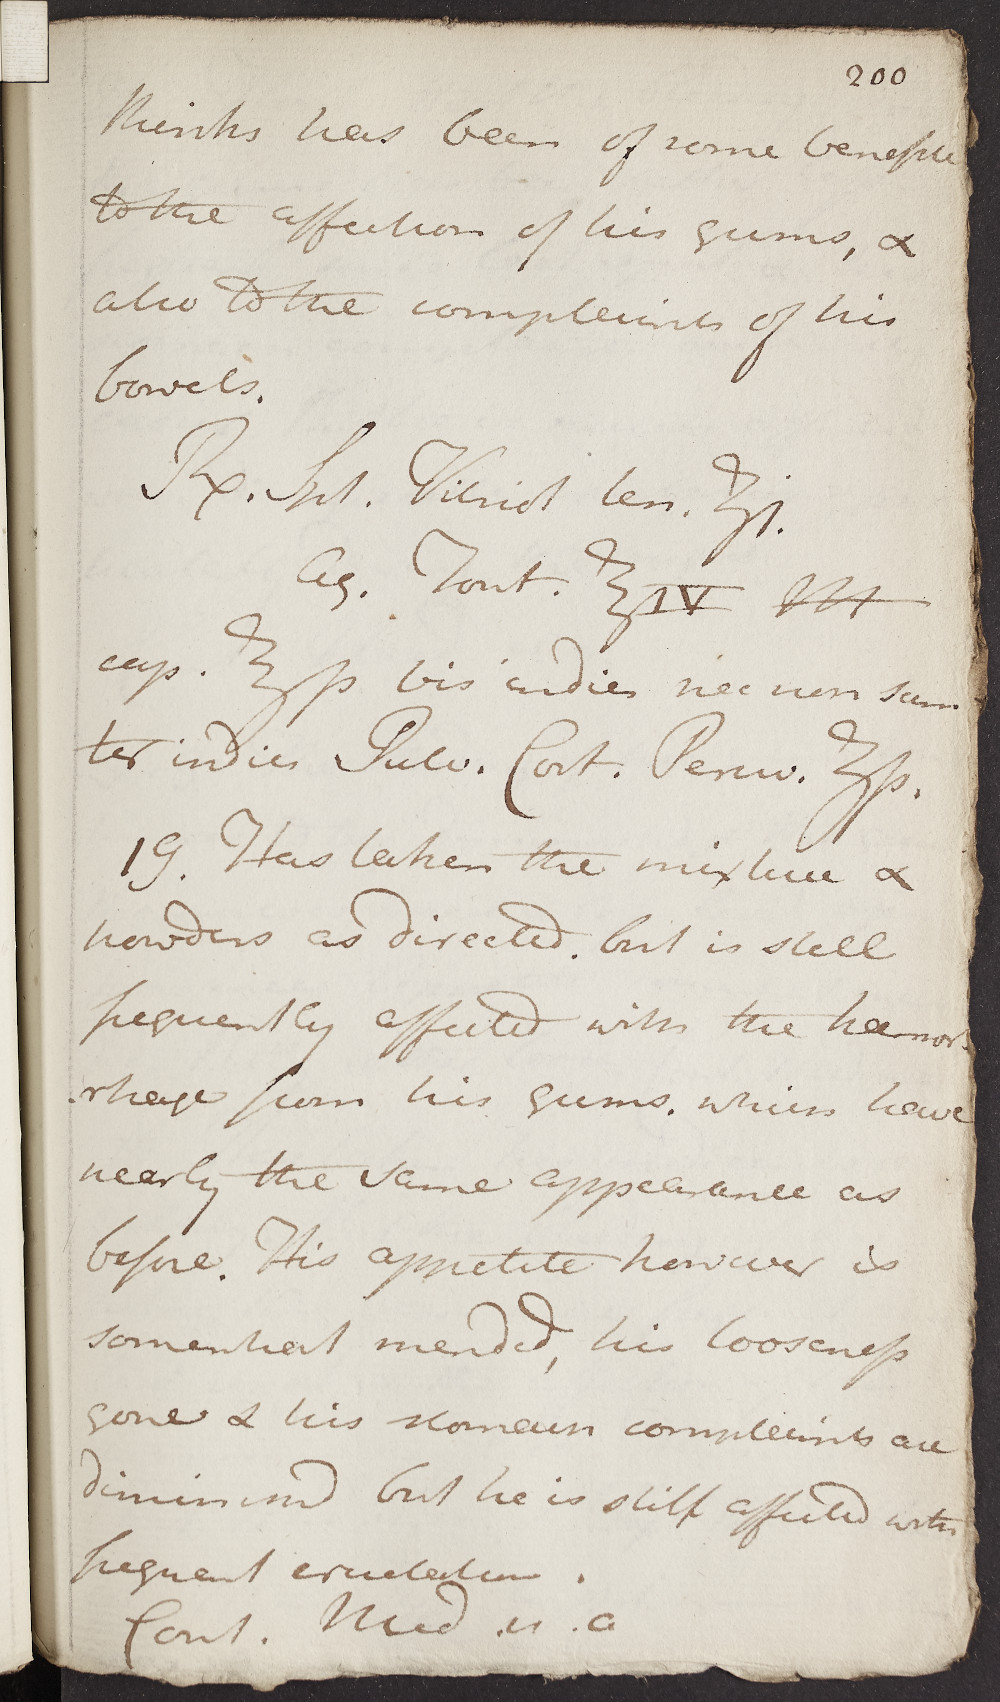 200
thinks has been of some benefit
to the affection of his gums, &
also to the complaints of his
bowels.
Rx. Spt. Vitriol ten. ʒj.
Aq. Font. ℥IV M
cap. ℥ß bis indies nec non sum
ter indies Pulv. Cort. Peruv. ʒß.
19. Has taken the mixture &
powders as directed. but is still
frequently affected with the hæmor-
-rhage from his gums. which have
nearly the same appearance as
before. His appetite however is
somewhat mended, his looseness
gone & his stomach complaints are
diminishd but he is still affected with
frequent eructation.
Cont. Med. u. a